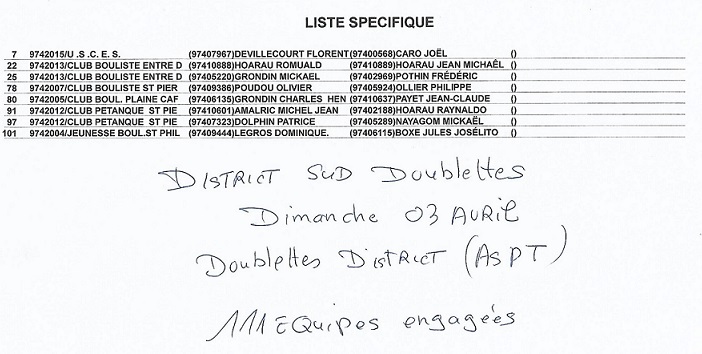 LISTE SPECIFIQUE
7 9742015/U .S .C. E. S. (97407967)DEVILLECOURT FLORENT (97400568)CARO JOËL ()
22 9742013/CLUB BOULISTE ENTRE D (97410888)HOARAU ROMUALD (97410889)HOARAU JEAN MICHAËL ()
25 9742013/CLUB BOULISTE ENTRE D (97405220)GRONDIN MICKAEL (97402969)POTHIN FRÉDÉRIC ()
78 9742007/CLUB BOULISTE ST PIER (97409386)POUDOU OLIVIER (97405924)OLLIER PHILIPPE ()
80 9742005/CLUB BOUL. PLAINE CAF (97406135)GRONDIN CHARLES HEN (97410637)PAYET JEAN-CLAUDE ()
91 9742012/CLUB PETANQUE ST PIE (97410601)AMALRIC MICHEL JEAN (97402188)HOARAU RAYNALDO ()
97 9742012/CLUB PETANQUE ST PIE (97407323)DOLPHIN PATRICE (97405289)NAYAGOM MICKAËL ()
101 9742004/JEUNESSE BOUL.ST PHIL (97409444)LEGROS DOMINIQUE. (97406115)BOXE JULES JOSÉLITO ()
DISTRICT SUD Doublettes
Dimanche 03 AVRIL
Doublettes DISTRICT (ASPT)
111 EQuipes engagées